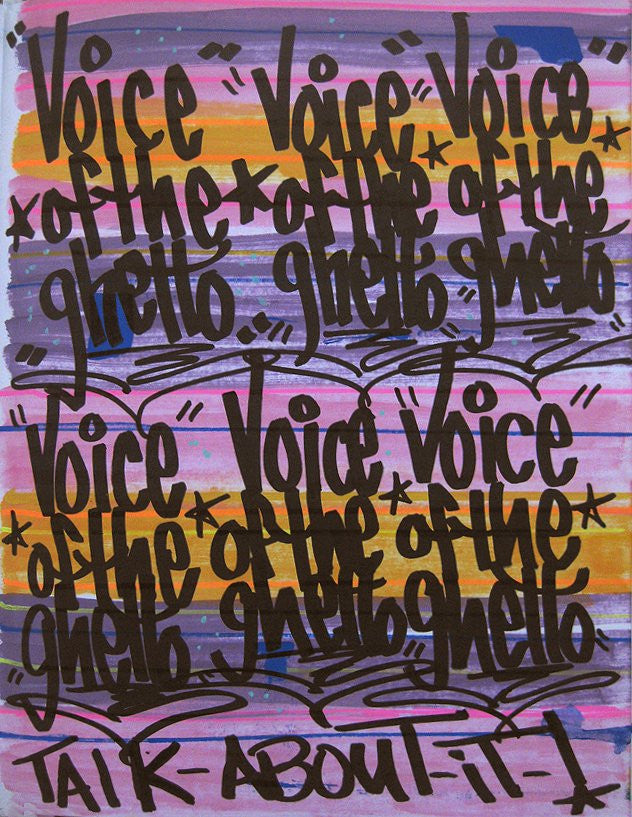 "Voice "Voice" "Voice"
*of the *of the *of the*
ghetto" ghetto" "ghetto"
"Voice" Voice "Voice"
*of the *of the *of the*
ghetto" ghetto ghetto"
TALK-ABOUT-iT-!